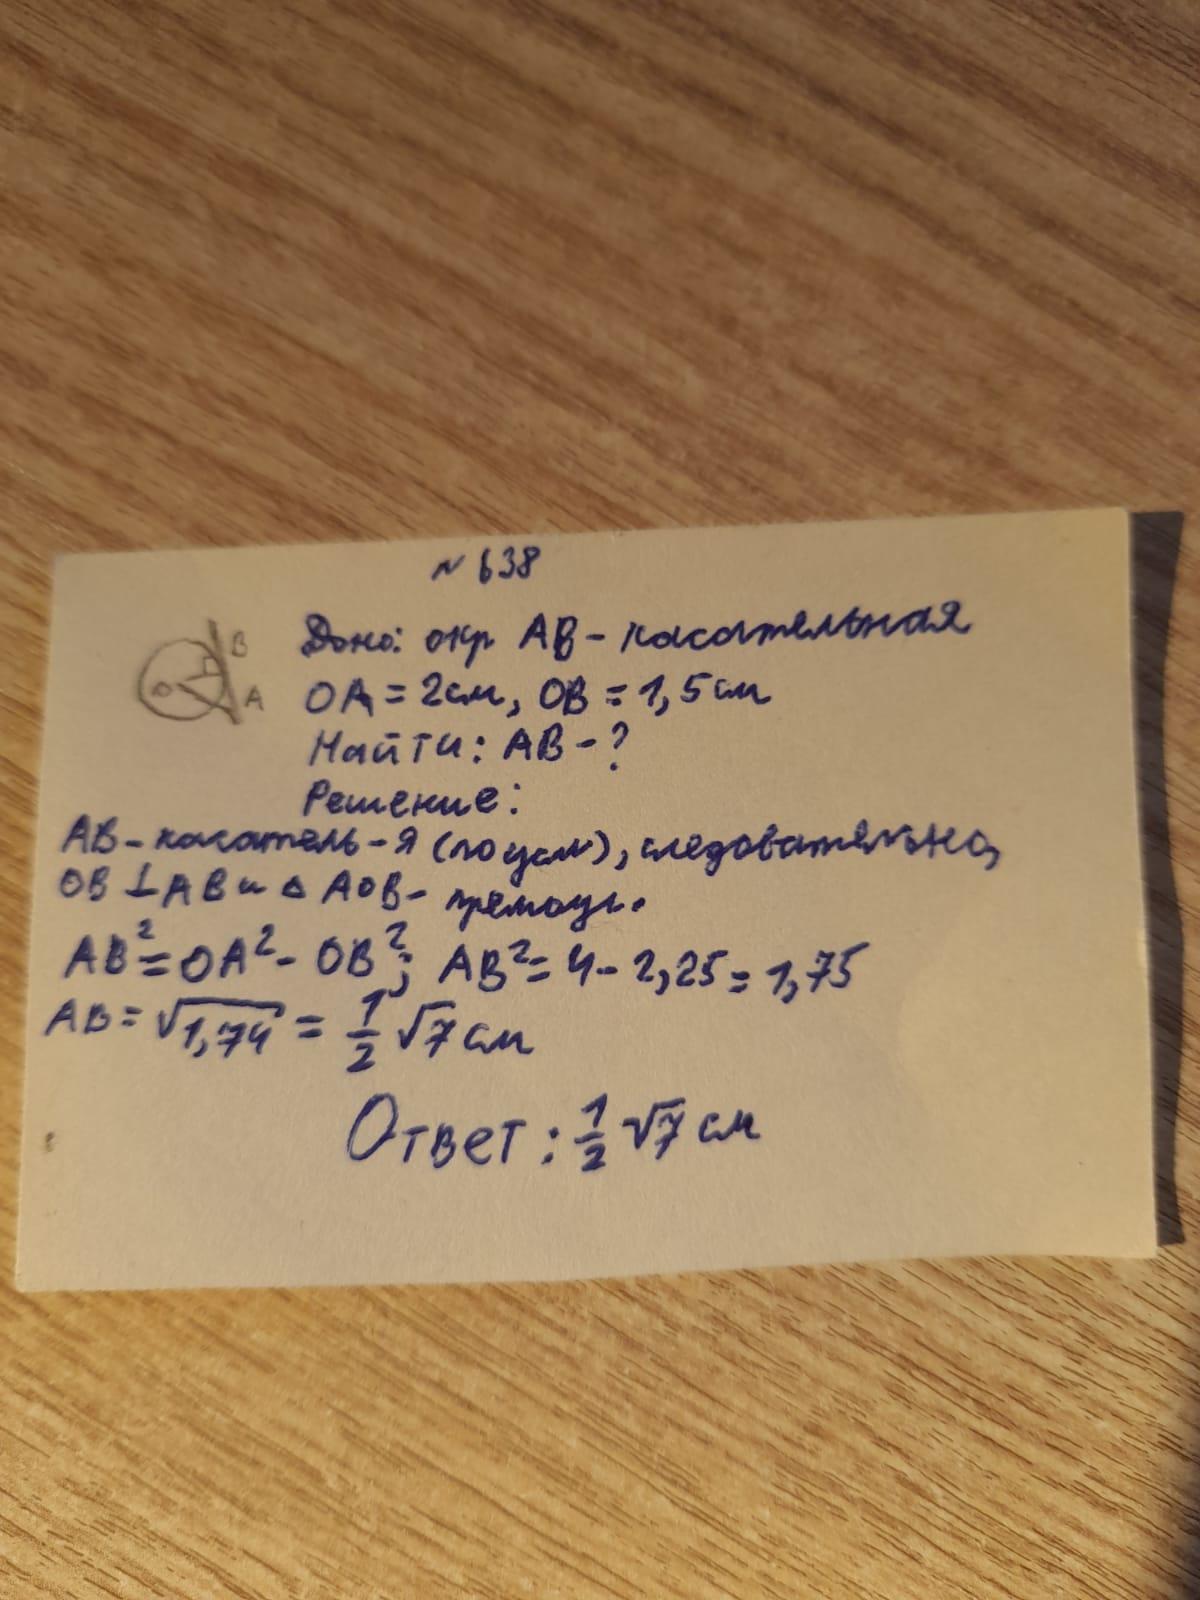 N 638
Дано: окр AB - касательная
OA = 2 см, OB = 1,5 см
Найти: AB - ?
Решение:
AB - касатель-я (по усл), следовательно,
OB ⊥ AB и △ AOB - прямоуг.
AB² = OA² - OB²; AB² = 4 - 2,25 = 1,75
AB = √1,74 = 1/2 √7 см
Ответ: 1/2 √7 см
B
O
A